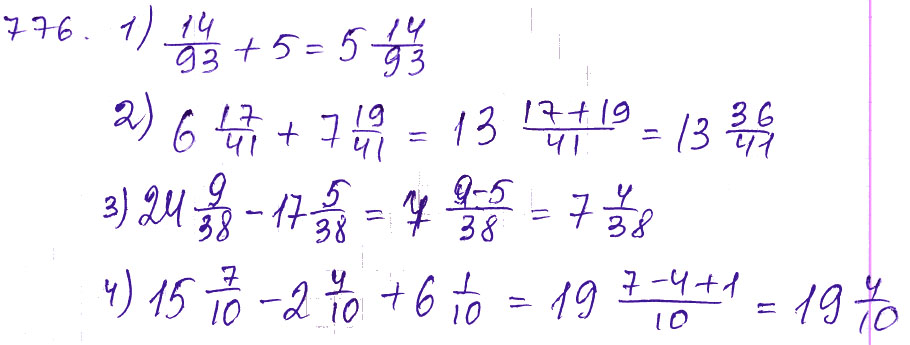 776. 1) 14/93 + 5 = 5 14/93
2) 6 17/41 + 7 19/41 = 13 (17+19)/41 = 13 36/41
3) 24 9/38 - 17 5/38 = 7 (9-5)/38 = 7 4/38
4) 15 7/10 - 2 4/10 + 6 1/10 = 19 (7-4+1)/10 = 19 4/10